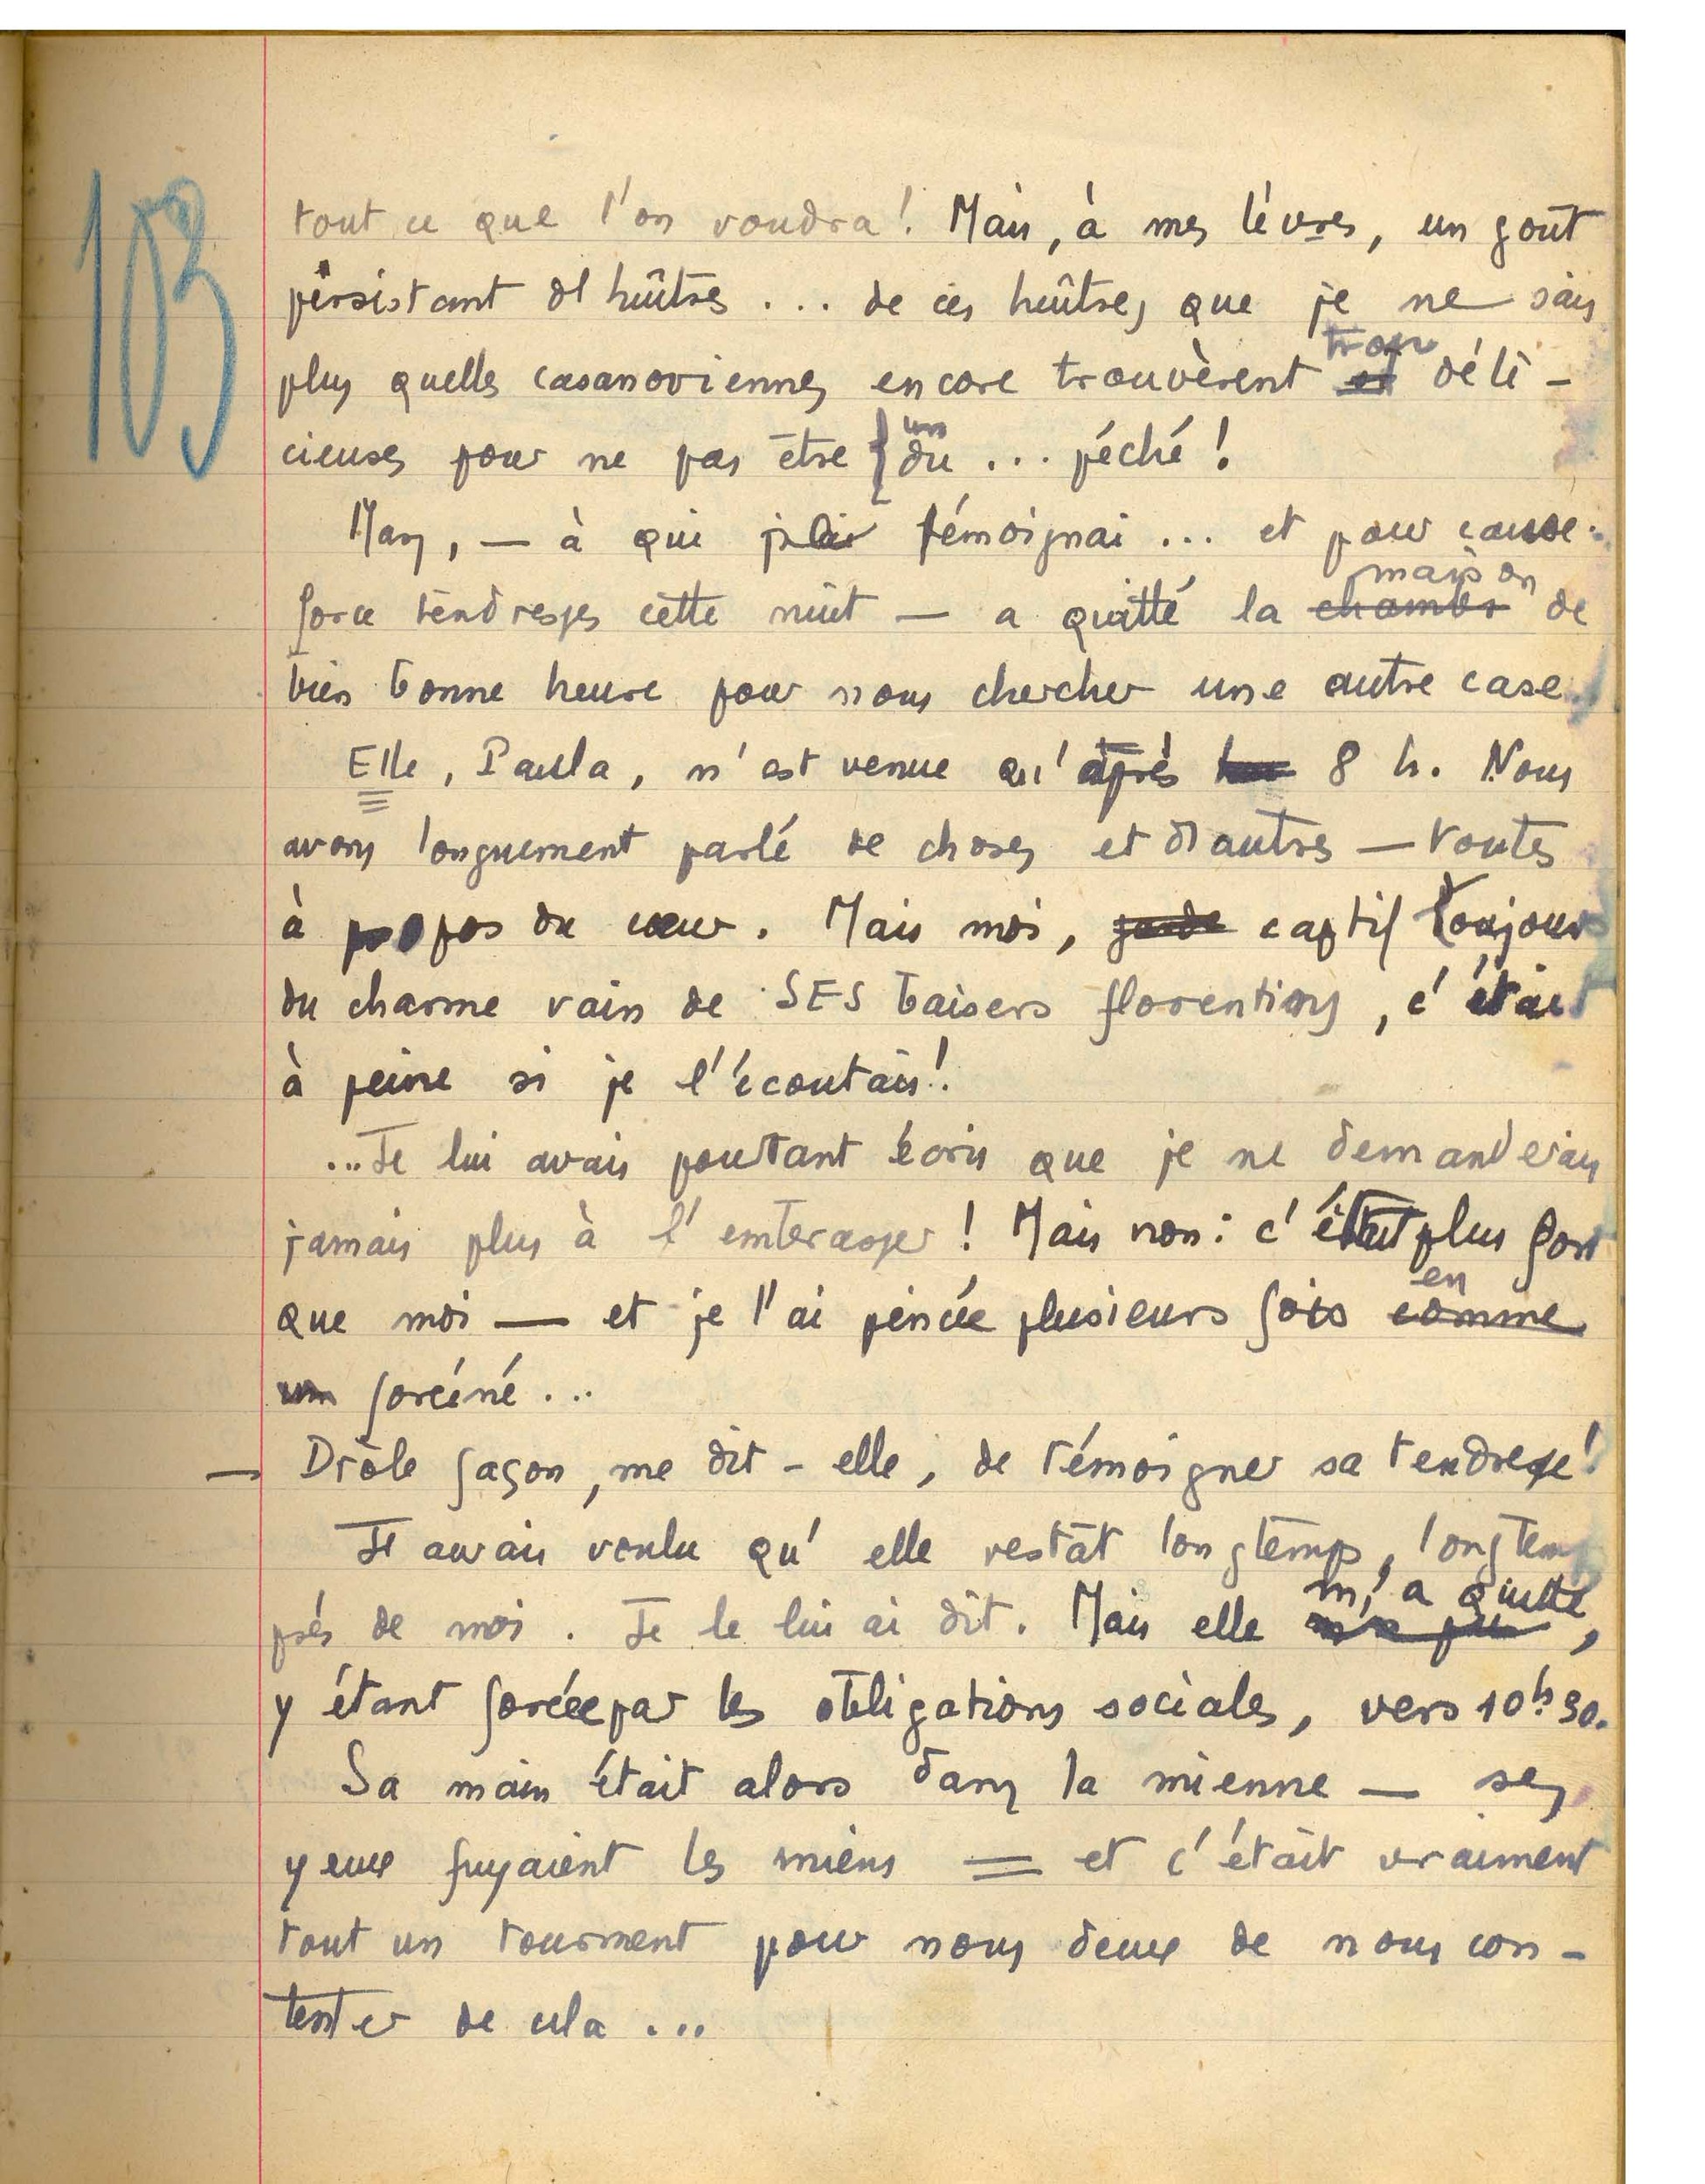 103
tout ce que l'on voudra ! Mais, à mes lèvres, un goût
persistant d'huîtres ... de ces huîtres que je ne sais
trop
plus quelles casanoviennes encore trouvèrent déli-
un
cieuses pour ne pas être { du ... péché !
Mary, — à qui témoignai ... et pour cause -
maison
force tendresses cette nuit — a quitté la chambre de
bien bonne heure pour nous chercher une autre case.
Elle, Paula, n'est venue qu'après 8 h. Nous
avons longuement parlé de choses et d'autres — toutes
à propos du cœur. Mais moi, captif toujours
du charme vain de SES baisers florentins, c'était
à peine si je l'écoutais !
... Je lui avais pourtant écrit que je ne demanderais
jamais plus à l'embrasser ! Mais non : c'était plus fort
en
que moi — et je l'ai pincée plusieurs fois comme
un forcéné ...
— Drôle façon, me dit-elle, de témoigner sa tendresse !
J'aurais voulu qu'elle restât longtemps, longtemps
m'a quitté,
près de moi. Je le lui ai dit. Mais elle ,
y étant forcée par les obligations sociales, vers 10h 30.
Sa main était alors dans la mienne — ses
yeux fuyaient les miens — et c'était vraiment
tout un tourment pour nous deux de nous con-
tenter de cela ...